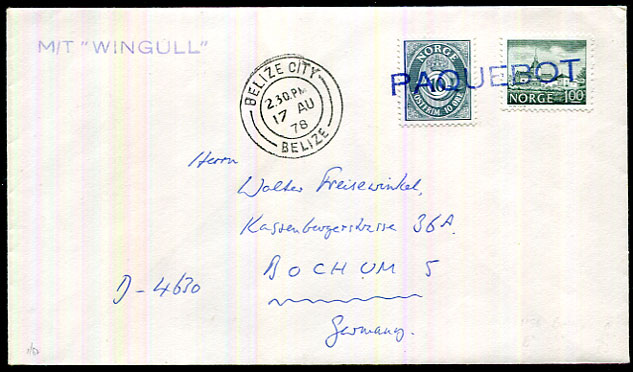 M/T "WINGULL"
BELIZE CITY
2.30.PM
17 AU
78
BELIZE
NORGE
10
POSTFRIM 10 ØRE
PAQUEBOT
NORGE 100
Herrn
Walter Freisewinkel,
Kassenbergerstrasse 36A.
BOCHUM 5
D-4630
Germany.